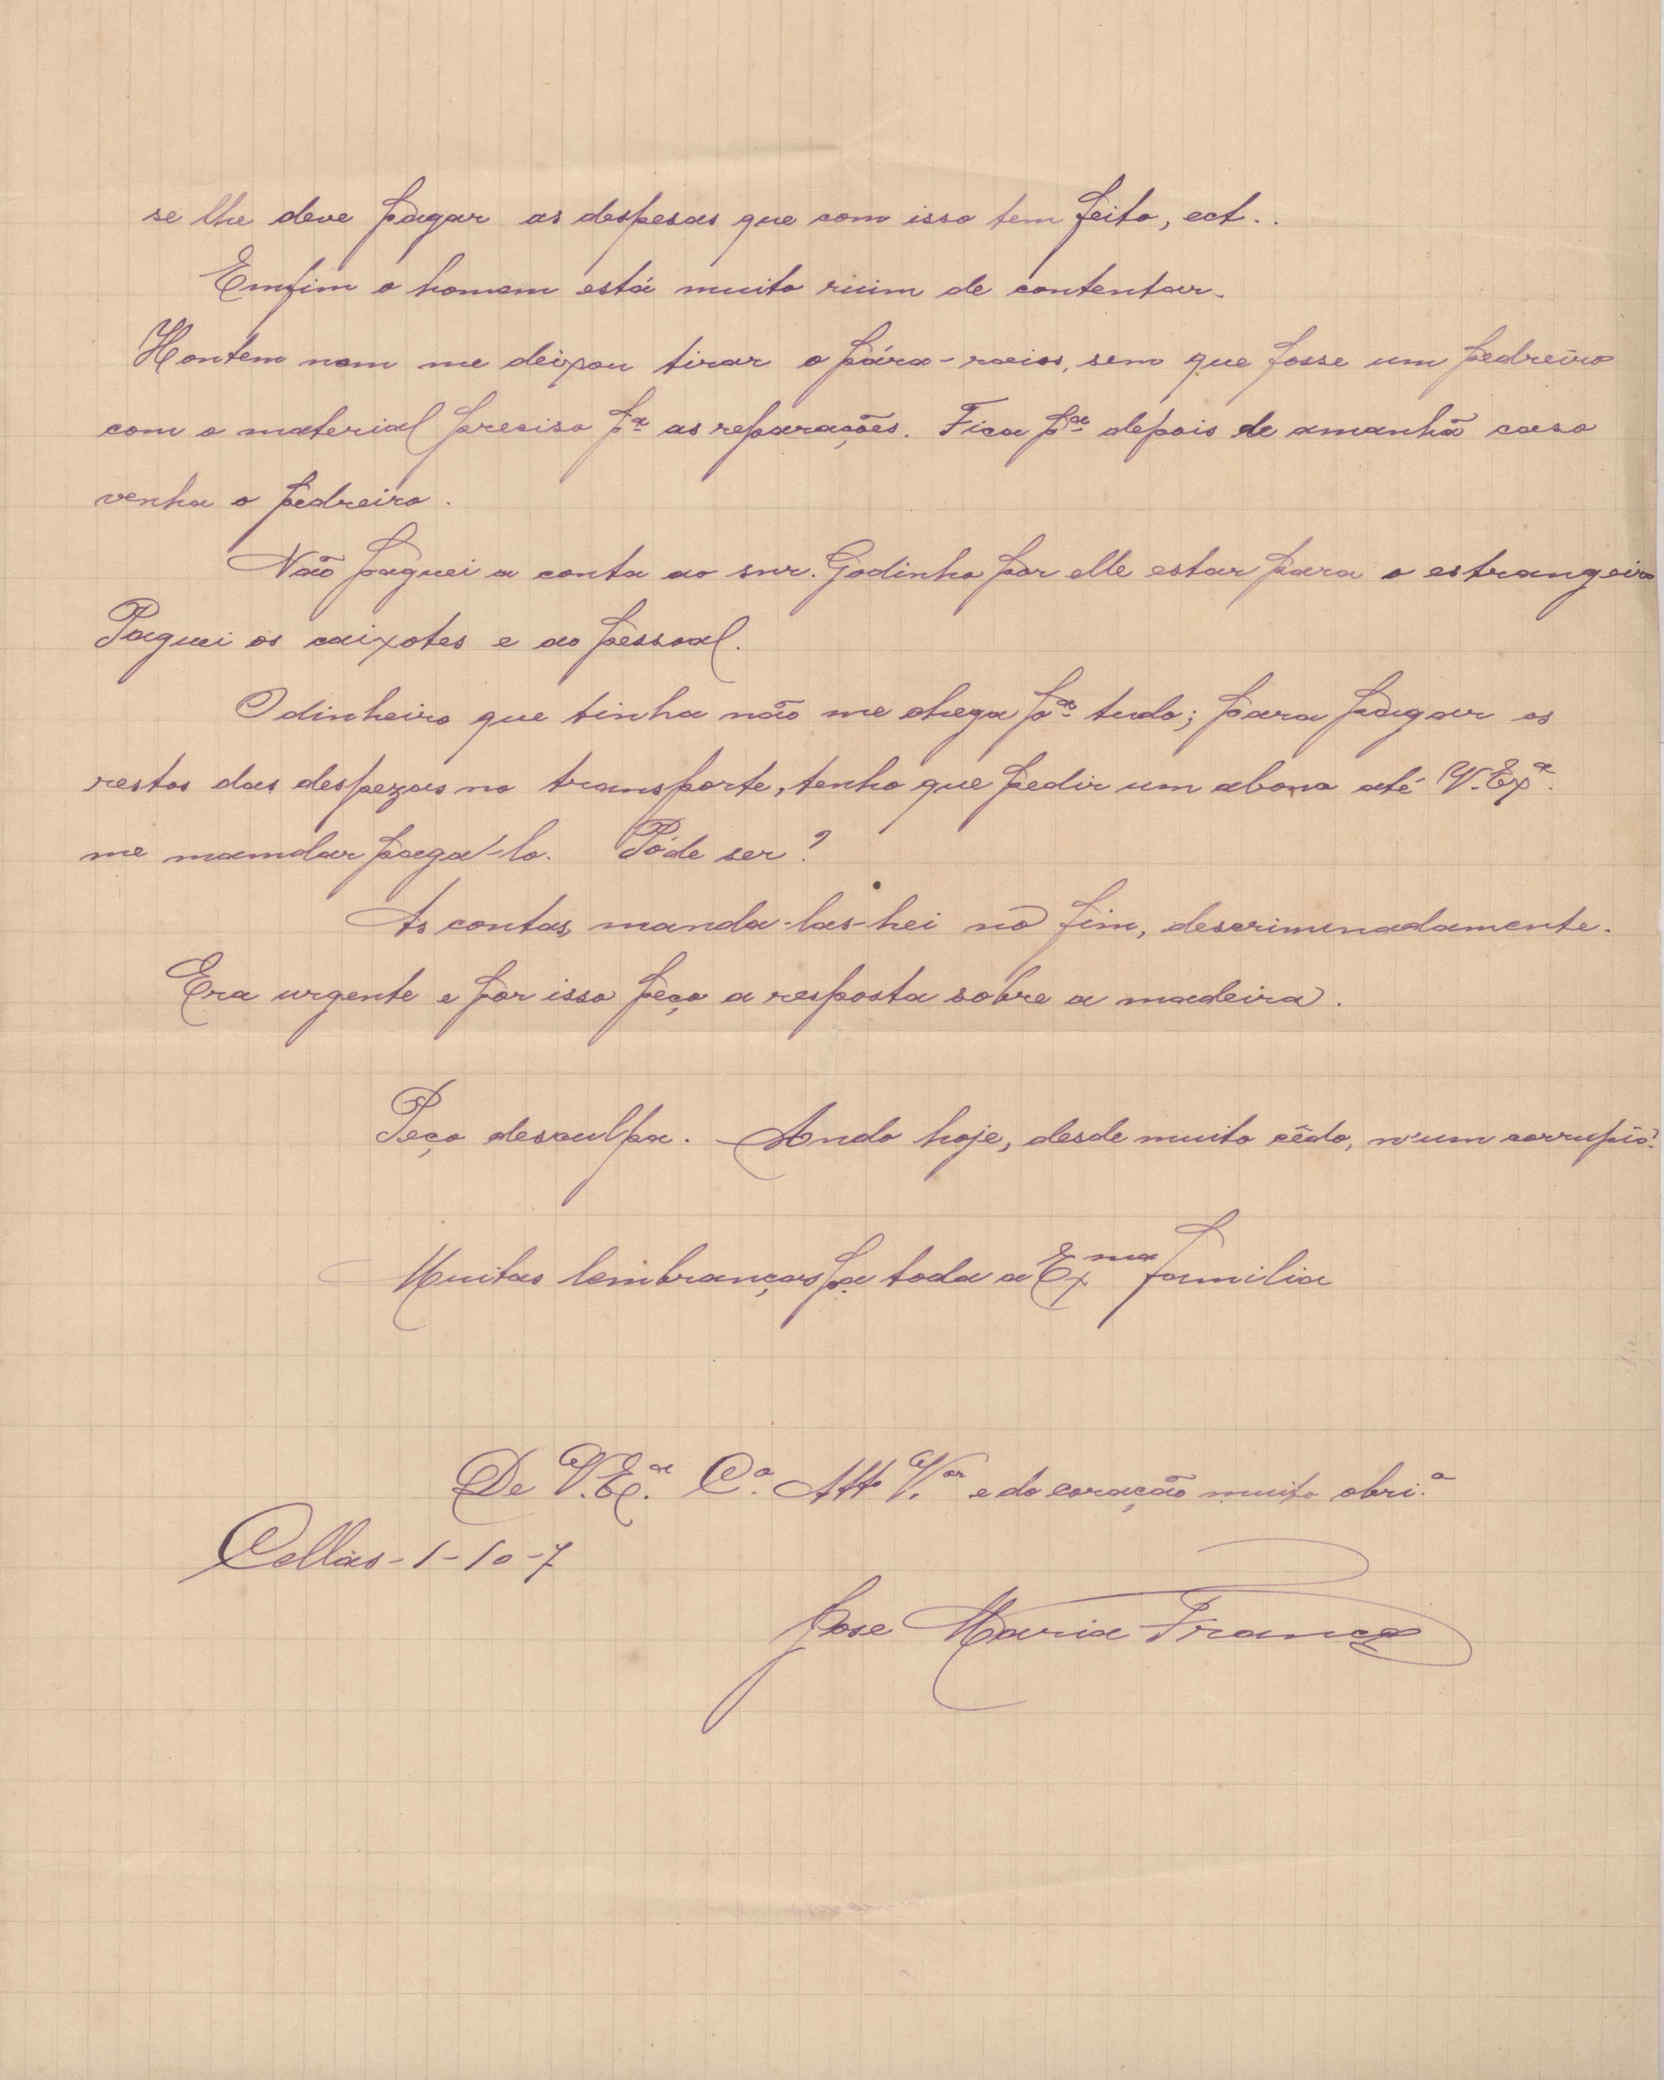 se lhe deve pagar as despesas que com isso tem feito, ect..
Emfim o homem está muito ruim de contentar.
Hontem nem me deixou tirar o pára-raios, sem que fosse um pedreiro
com o material preciso pª as reparações. Fica pª depois de amanhã caso
venha o pedreiro.
Não paguei a conta ao snr. Godinho por elle estar para o estrangeiro
Paguei os caixotes e ao pessoal.
O dinheiro que tinha não me chega pª tudo; para pagar os
restos das despezas no transporte, tenho que pedir um abono até V. Exª.
me mandar paga-lo. Póde ser?
As contas, manda-las-hei no fim, descriminadamente.
Era urgente e por isso peço a resposta sobre a madeira.
Peço desculpa. Ando hoje, desde muito cêdo, n'um corrupio.
Muitas lembranças pª toda a Exma familia
De V. Exª. Cº. Attº Vor e do coração muito obri.º
Cellas-1-10-7
Jose Maria Franco